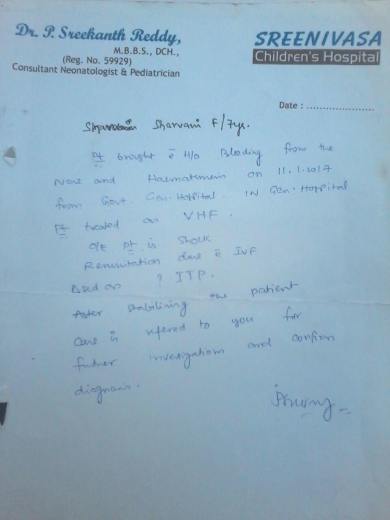 Dr. P. Sreekanth Reddy,
M.B.B.S., DCH.,
(Reg. No. 59929)
Consultant Neonatologist & Pediatrician
SREENIVASA
Children's Hospital
Date : ......................
Sharvani F/7yr.
Pt brought c̄ H/o Bleeding from the
Nose and Haematemesis on 11.1.2017
from Govt. Gen. Hospital. IN Gen. Hospital
Pt treated as VHF.
O/E pt is shock
Resuscitation done c̄ IVF
Based on ? ITP.
After stabilising the patient
Case is refered to you for
further investigations and confirm
diagnosis.